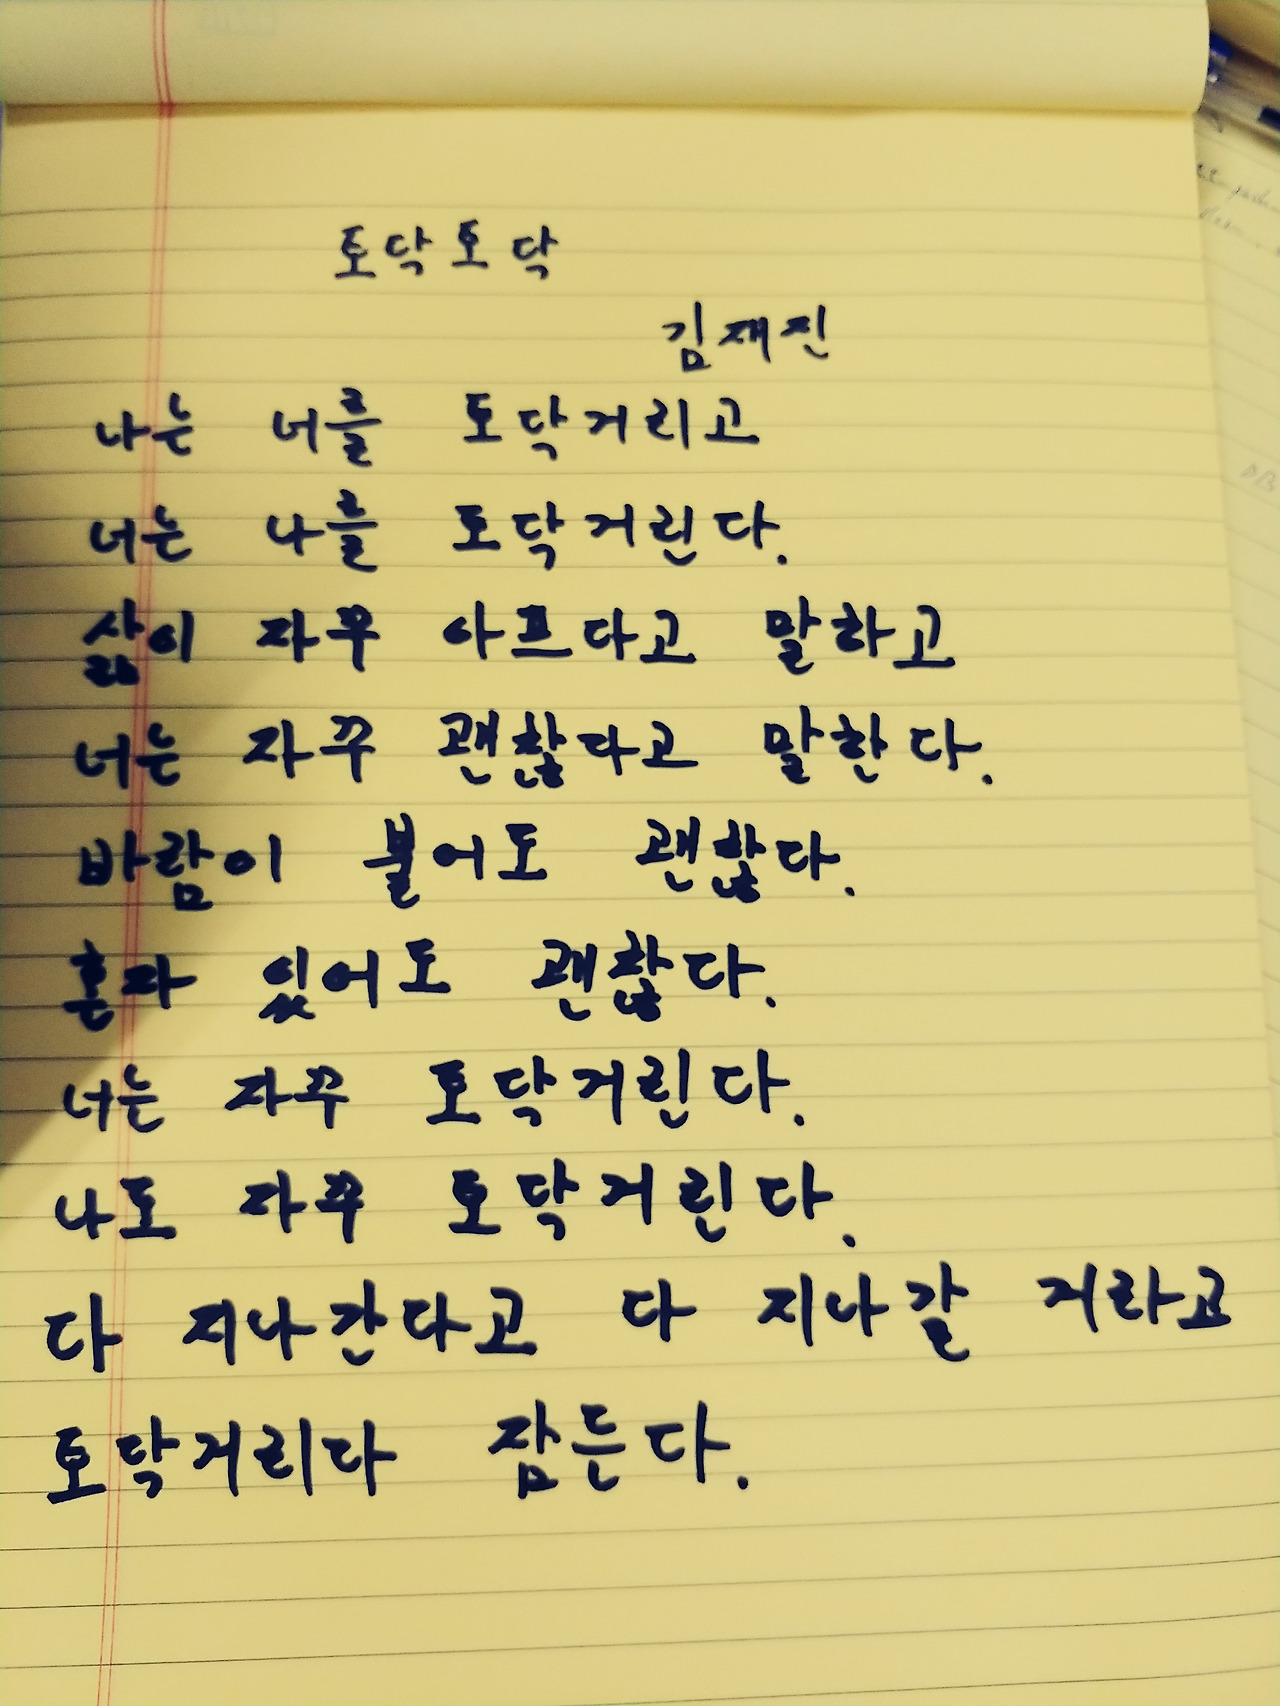 토닥토닥
김재진
나는 너를 토닥거리고
너는 나를 토닥거린다.
삶이 자꾸 아프다고 말하고
너는 자꾸 괜찮다고 말한다.
바람이 불어도 괜찮다.
혼자 있어도 괜찮다.
너는 자꾸 토닥거린다.
나도 자꾸 토닥거린다.
다 지나간다고 다 지나갈 거라고
토닥거리다 잠든다.